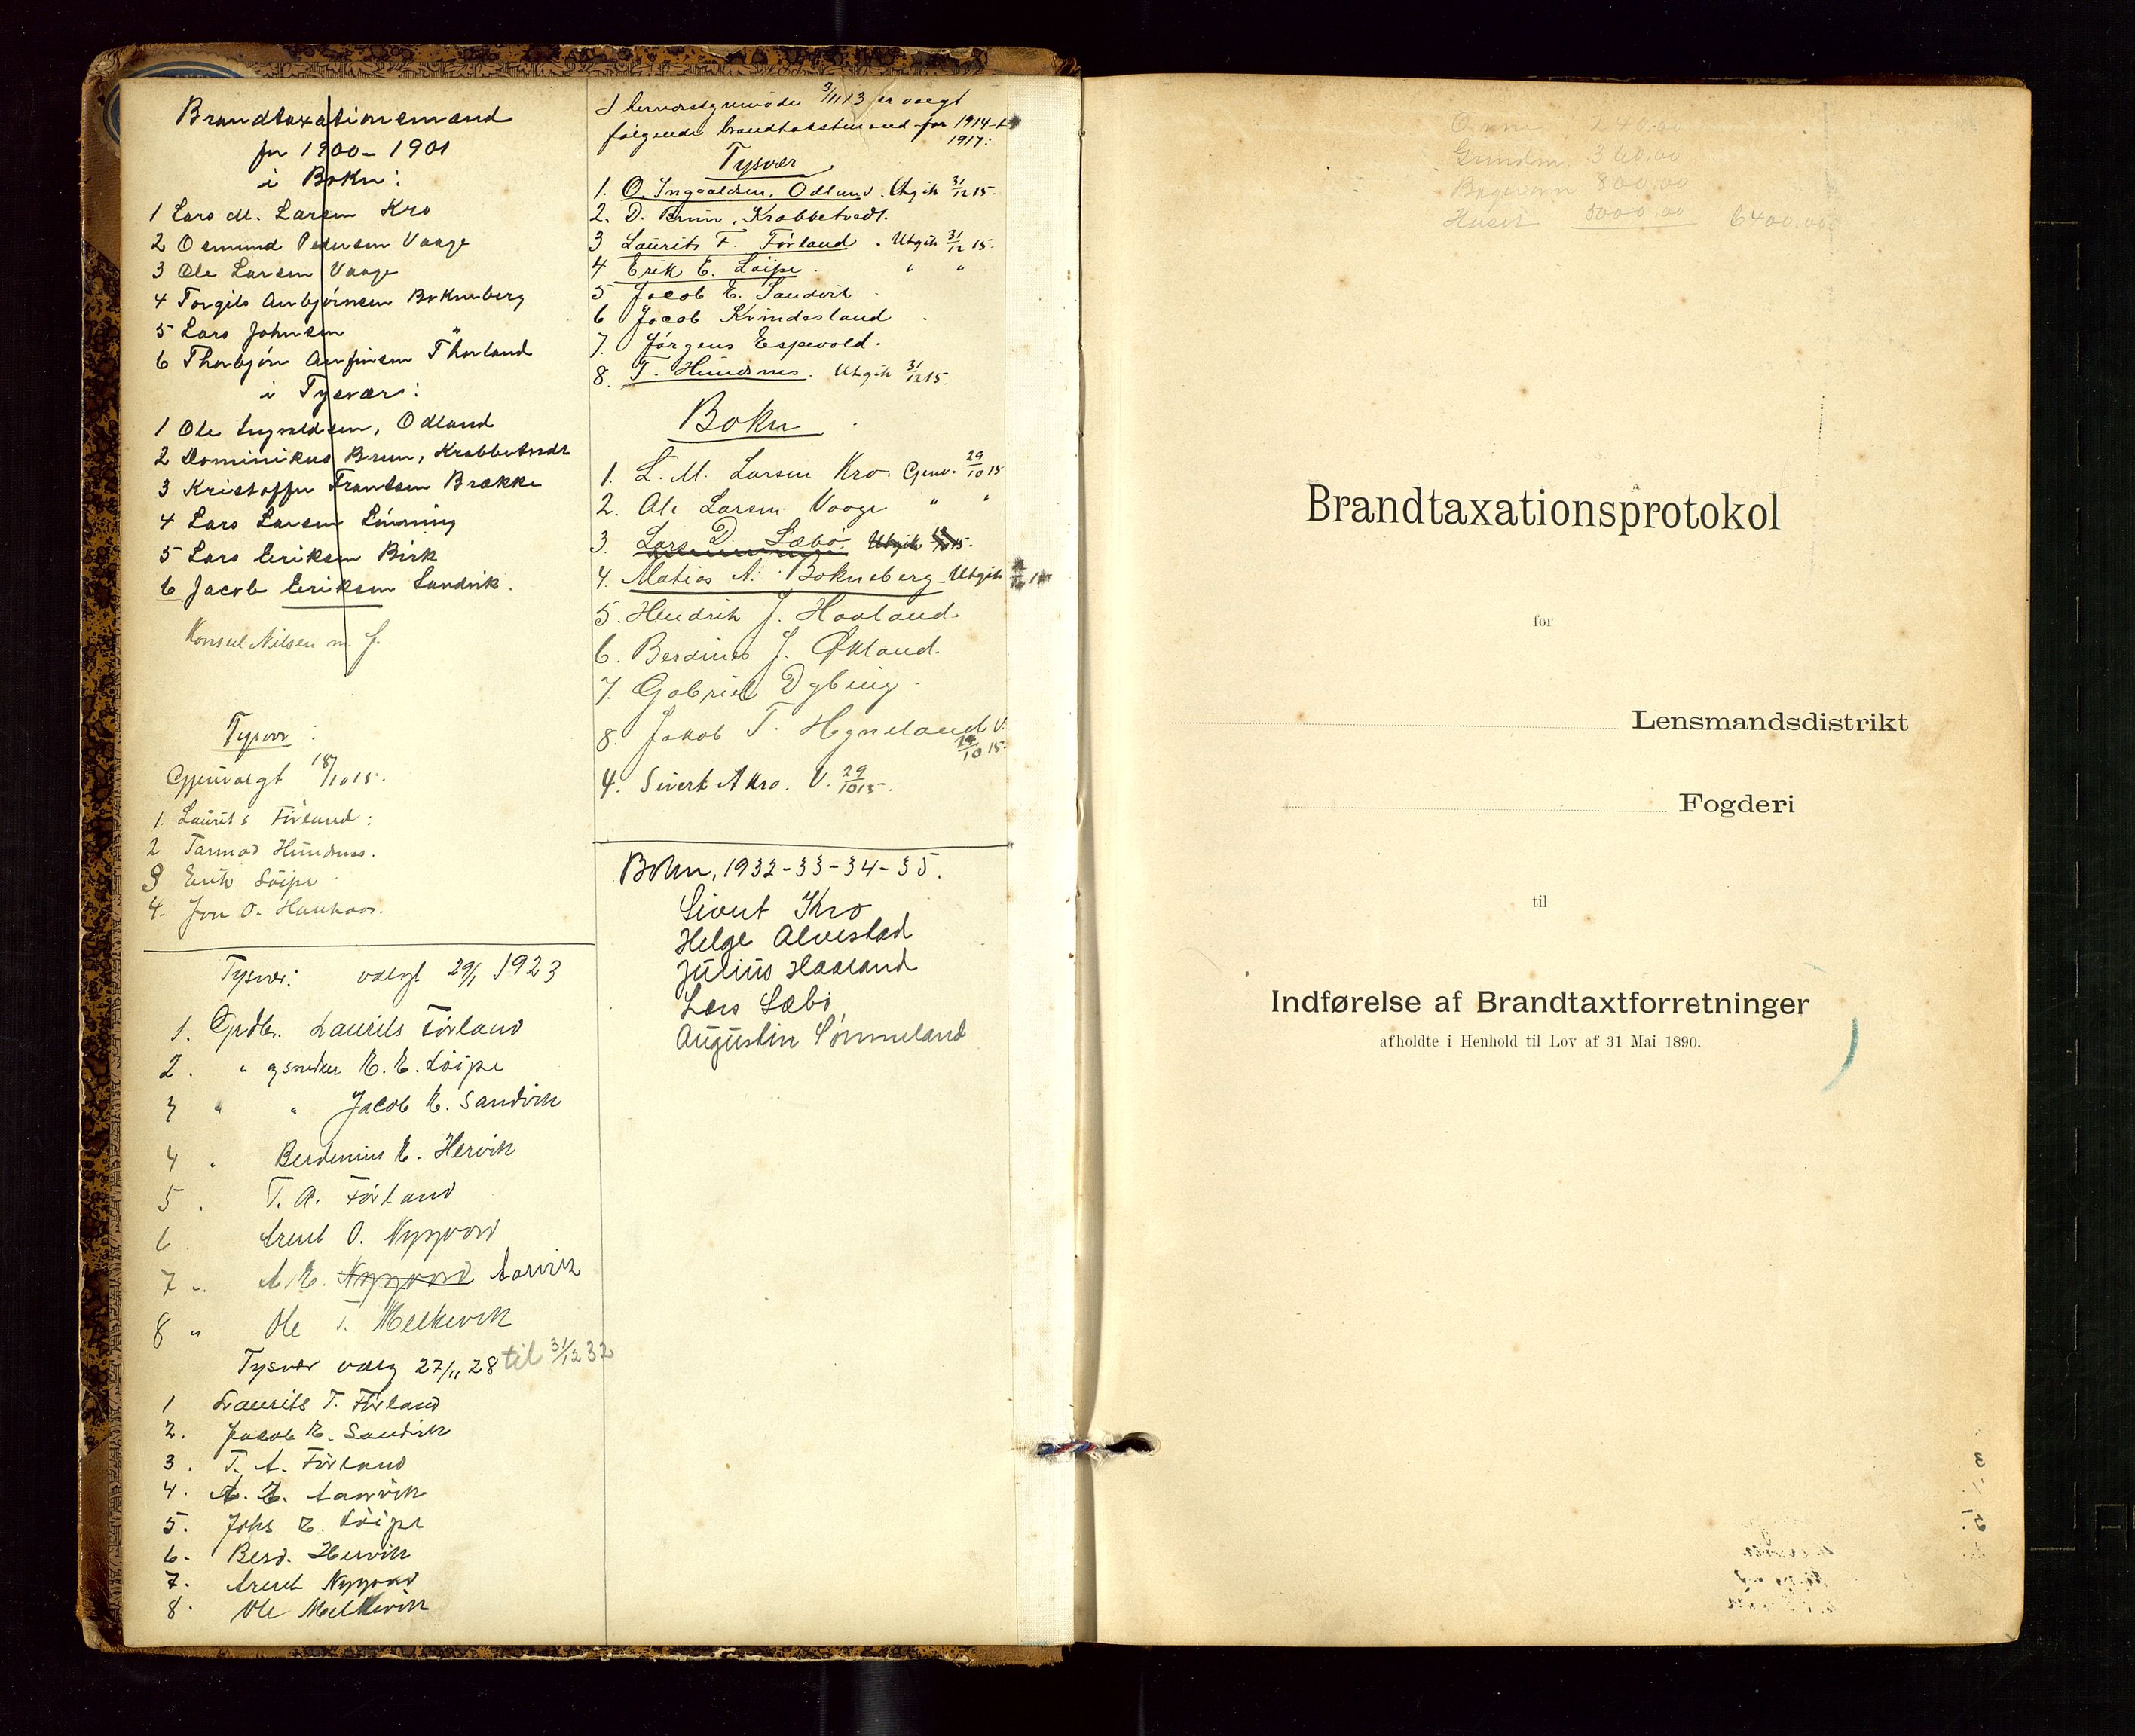 Brandtaxationsmænd
for 1900-1901
i Bokn:
1 Lars M. Larsen Kro
2 Osmund Pedersen Vaage
3 Ole Larsen Vaage
4 Torgils Anbjørnsen Bokneberg
5 Lars Johnsen "
6 Thorbjørn Anfinsen
i Tysvær:
1 Ole Ingvaldsen, Odland
2 Dominikus Brun, Krabbetvedt
3 Kristoffer Frantsen Brække
4 Lars Larsen
5 Lars Eriksen Birk
6 Jacob Eriksen Sandvik.
Konsul Nilsen m. f.
Tysvær :
Gjenvalgt 18/10 15.
1. Laurits Førland:
2 Tarmod Hundnes.
3 Erik Løipe
4. Jon O.
Tysvær: valgt 29/1 1923
1. Grdbr. Laurits Førland
2. " og snedker E. E. Løipe
3 " " Jacob E. Sandvik
4 " Berdinius E. Hervik
5 . T. A. Førland
6 . Arent O. Nygaard
7 " A. E. Nygaard Aarvik
8 " Ole T. Melkevik
Tysvær valg 27/11 28 til 31/12 32
1 Laurits T. Førland
2. Jacob E. Sandvik
3. T. A. Førland
4. A. E. Aarvik
5. Johs E. Løipe
6. Berd. Hervik
7. Arent Nygaard
8. Ole Melkevik
I herredsstyremøde 3/11 13 er valgt
følgende brandtakstmænd for 1914-
1917:
Tysvær
1. O. Ingvaldsen, Odland. Utgik 31/12 15.
2. D. Brun, Krabbetvedt.
3 Laurits T. Førland. Utgik 31/12 15.
4 Erik E. Løipe. " "
5 Jacob E. Sandvik
6 Jacob Kvindesland
7. Jørgens Espevold.
8. T. Hundsnes. Utgik 31/12 15.
Bokn
1. L. M. Larsen Kro. Gjenv. 29/10 15
2. Ole Larsen Vaage " "
3. Lars D. Sæbø. Utgik 15.
4. Matias A. Bokneberg. Utgik
5. Hendrik J. Haaland.
6. Berdines J. Økland.
7. Gabriel Dybing.
8. Jakob T. Hegneland V.
29/10 15.
4. Sivert A Kro. V. 29/10 15.
Bokn, 1932-33-34-35.
Sivert Kro
Helge Alvestad
Julius Haaland
Lars Sæbø
Augustin Sønneland
Orne 240.00
360.00
800.00
Huset 5000.00 6400.00
Brandtaxationsprotokol
for
Lensmandsdistrikt
Fogderi
til
Indførelse af Brandtaxtforretninger
afholdte i Henhold til Lov af 31 Mai 1890.